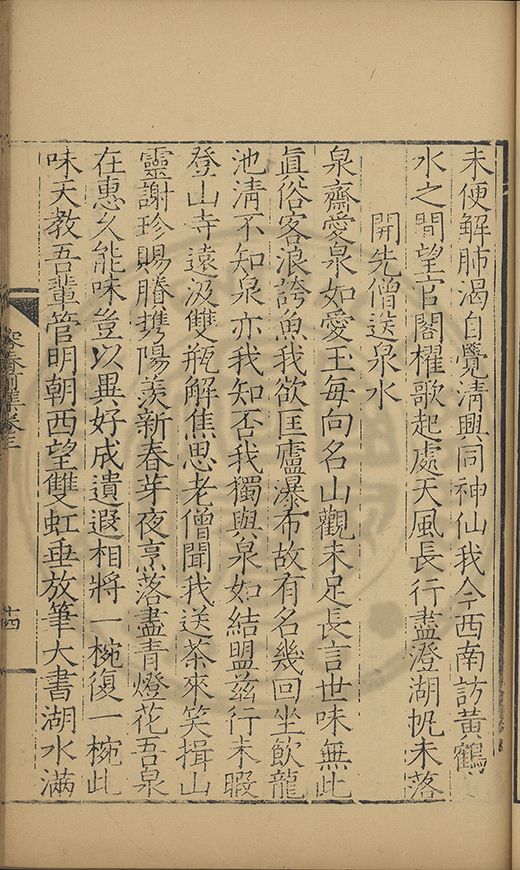 未便解肺渴自覺清興同神仙我今西南訪黃鶴
水之間望官閣櫂歌起處天風長行盡澄湖帆未落
開先僧送泉水
泉齋愛泉如愛玉每向名山觀未足長言世味無此
眞俗客浪誇魚我欲匡廬瀑布故有名幾回坐飲龍
池清不知泉亦我知否我獨與泉如結盟茲行未暇
登山寺遠汲雙瓶解焦思老僧聞我送茶來笑揖山
靈謝珍賜賸携陽羨新春芽夜烹落盡青燈花吾泉
在惠久能味豈以異好成遺遐相將一椀復一椀此
味天教吾輩管明朝西望雙虹垂放筆大書湖水滿
容春前集卷三
十四